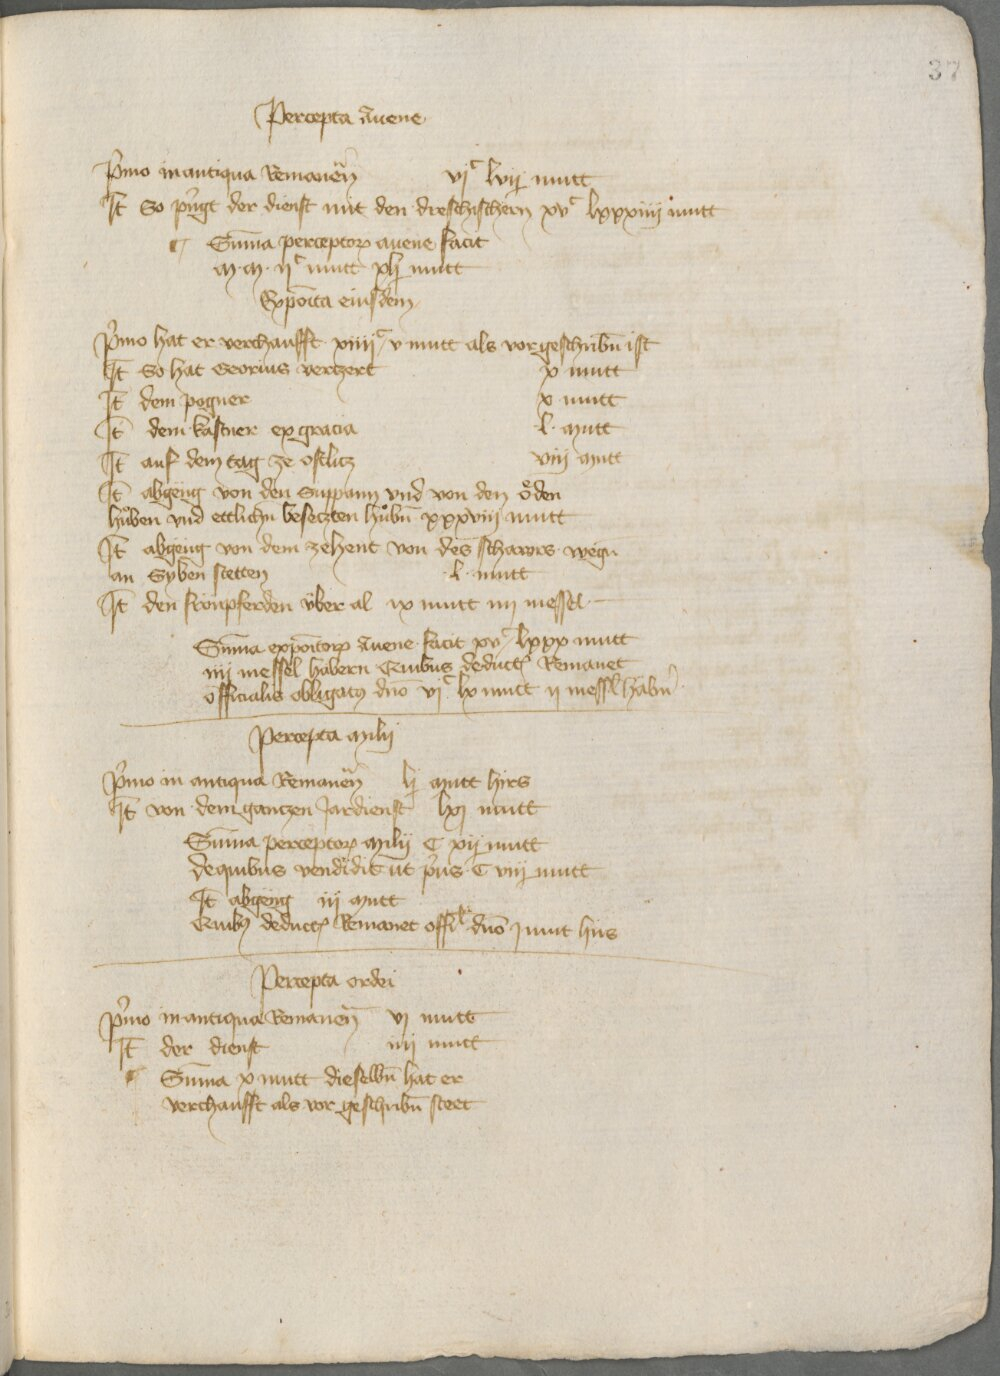 37
Percepta Auene
P̾mo in antiqua Remanen̄ vjᶜ lvij mutt
It̄ So pringt der dienst mit den dreschischern xvᶜ lxxxiiij mutt
Sum̄a perceptoꝝ auene facit
M · M · ijᶜ mutt xlj mutt
Expoīta eiusdem
P̾mo hat er verchaufft xiiijᶜ v mutt als vorgeschribn̄ ist
It̄ So hat Georius verczert x mutt
It̄ dem pogner x mutt
It̄ dem kastner ex gracia l · mutt
It̄ auf dem tag ze Ostlicz viij mutt
It̄ abgeng von den Suppann vnd von den öden
hůben vnd ettlichn beseczten hůbn̄ xxxviij mutt
It̄ abgeng von dem zehent von des scharers wegn
an Syben stetten l · mutt
It̄ den fronpferden vber al ix mutt iiij messel
Sum̄a expoītoꝝ Auene facit xvᶜ lxxx mutt
iiij messel habern Quibus deductꝭ Remanet
officialis obligatꝰ dn̄o vjᶜ lx mutt ij messl habn̄
Percepta milij
P̾mo in antiqua Remanen̄ lj mutt hirs
It̄ von dem ganczen Jardienst lxj mutt
Sum̄a perceptoꝝ milij C xij mutt
de quibus vendidit ut p̾us C viij mutt
It̄ abgeng iij mutt
Quibꝰ deductꝭ Remanet offilˢ dn̄o j mut hirs
Percepta ordei
P̾mo in antiqua Remanen̄ vj mutt
It̄ der dienst iiij mutt
Sum̄a x mutt dieselbn̄ hat er
verchaufft als vor geschribn̄ steet